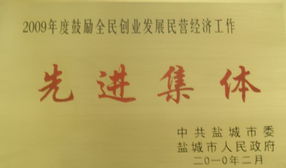 2009年度鼓励全民创业发展民营经济工作
先进集体
中共盐城市委
盐城市人民政府
二〇一〇年二月